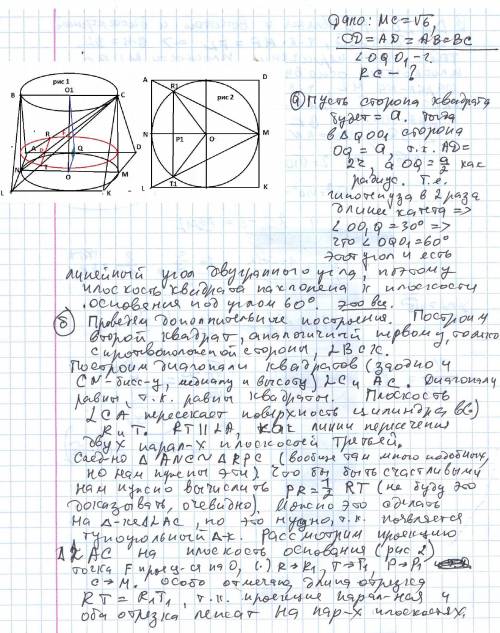 Дано: MC = √6,
CD = AD = AB = BC
∠OQO₁ - ?
RC - ?
рис 1
O1
B
C
R
A
Q
D
N
O
M
L
K
рис 2
A
R1
D
N
P1
O
M
T1
L
K
а) Пусть сторона квадрата
будет = a. Тогда
в ΔQOO₁ сторона
OQ = a, т.к. AD=
2r, а OQ = a/2 как
радиус. Т.е.
гипотенуза в 2 раза
длиннее катета =>
∠OO₁Q = 30° =>
что ∠OQO₁ = 60°
Этот угол и есть
линейный угол двугранного угла, поэтому
плоскость квадрата наклонена к плоскости
основания под углом 60°. Это все.
б) Проведем дополнительные построения. Построим
второй квадрат, аналогичный первому, только
с противоположной стороны, LBCK.
Построим диагонали квадратов (заодно и
CN - бисс-у, медиану и высоту) LC и AC. Диагонали
равны, т.к. равны квадраты. Плоскость
LCA пересекает поверхность цилиндра в (.)
R и T. RT II LA, как линии пересечения
двух парал-х плоскостей третьей.
След-но Δ ANC ~ Δ RPC (вообще там много подобных,
но нам нужны эти). Что бы быть счастливыми
нам нужно вычислить PR = 1/2 RT (не буду это
доказывать, очевидно). Можно это сделать
на Δ-ке LAC, но это нудно, т.к. появляется
тупоугольный Δ-к. Рассмотрим проекцию
Δ LAC на плоскость основания (рис 2)
точка F проец-ся на O, (.) R → R₁, T → T₁, P → P₁
C → M. Особо отмечаю, длина отрезка
RT = R₁T₁, т.к. проекция парал-ная и
оба отрезка лежат на пар-х плоскостях.